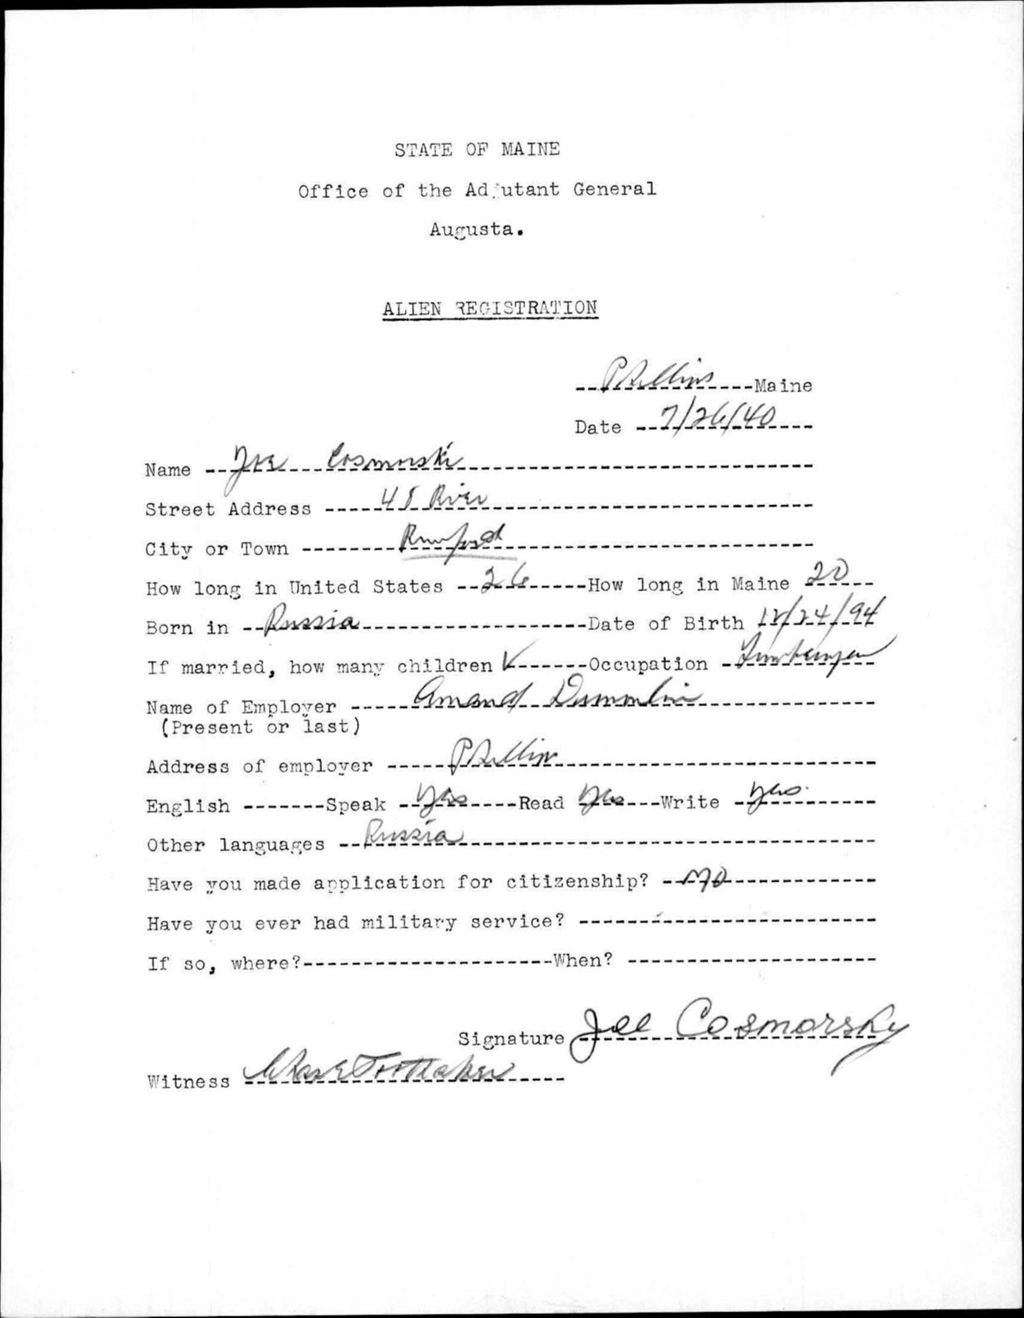 STATE OF MAINE
Office of the Adjutant General
Augusta.
ALIEN REGISTRATION
Phillips Maine
Date 7/26/40
Name Joe Cosmorski
Street Address 48 River
City or Town Rumford
How long in United States 26 How long in Maine 20
Born in Russia Date of Birth 12/24/94
If married, how many children Occupation
Name of Employer Amand
(Present or last)
Address of employer Phillips
English Speak yes Read yes Write yes
Other languages Russia
Have you made application for citizenship? no
Have you ever had military service? -
If so, where? When?
Signature Joe Cosmorsky
Witness